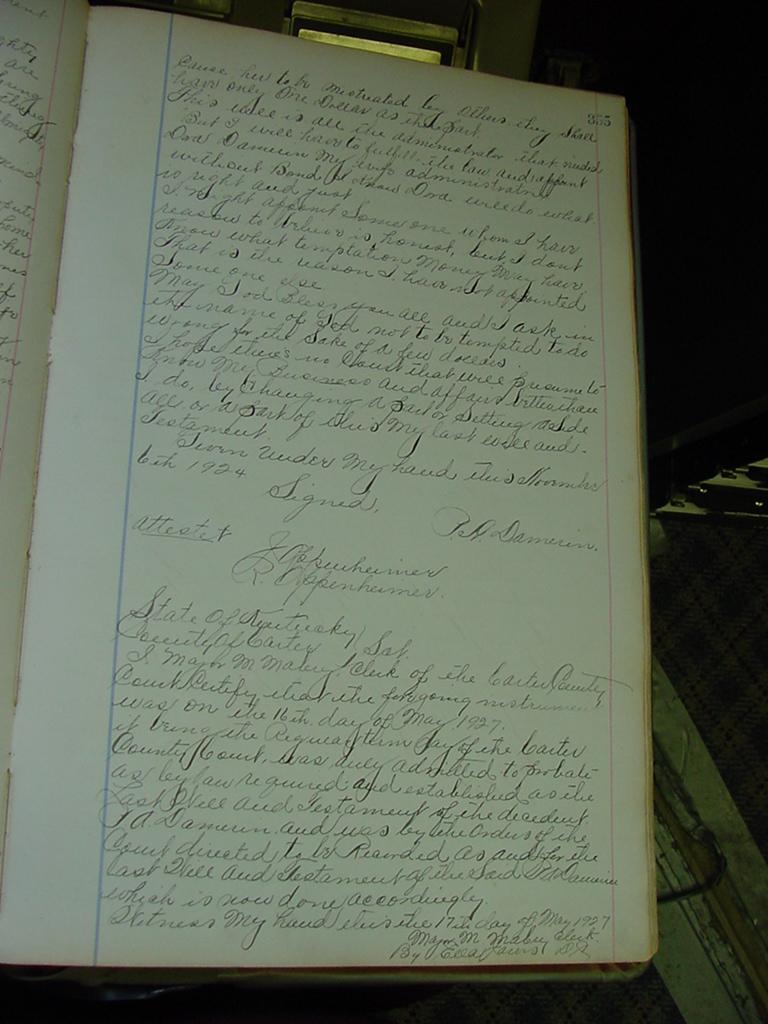 355
cause her to be mistreated by others they shall
have only One Dollar as their part
This will is all the administrator that needed
But I will have to fulfill the law and appoint
Ora Damerin My wife administratrix
without Bond I know Ora will do what
is right and just
I might appoint some one whom I have
reason to believe is honest, but I dont
know what temptation Money May have
That is the reason I have not appointed
Some one else
May God Bless you all and I ask in
the name of God not to be tempted to do
wrong for the sake of a few dollars.
I hope there's no Court that will presume to
know My Business and affairs better than
I do, by Changing a part or Setting aside
all or a part of this My last will and
Testament.
Given Under My hand this November
6th 1924
Signed,
P.A. Damerin.
Attest
J Oppenheimer
R. Oppenheimer.
State Of Kentucky) Sct.
County Of Carter)
I. Major M Mabry Clerk of the Carter County
Court Certify that the foregoing instrument
was on the 16th. day of May 1927.
it being the Regular term day of the Carter
County Court, was duly admitted to probate
as by law required and established as the
Last Will and Testament of the decedent
P.A. Damerin. and was by the Orders of the
Court directed to be Recorded as and for the
last Will and Testament of the Said P.A. Damerin
which is now done accordingly.
Witness My hand this the 17th day of May 1927
Major M Mabry Clerk.
By D.C.